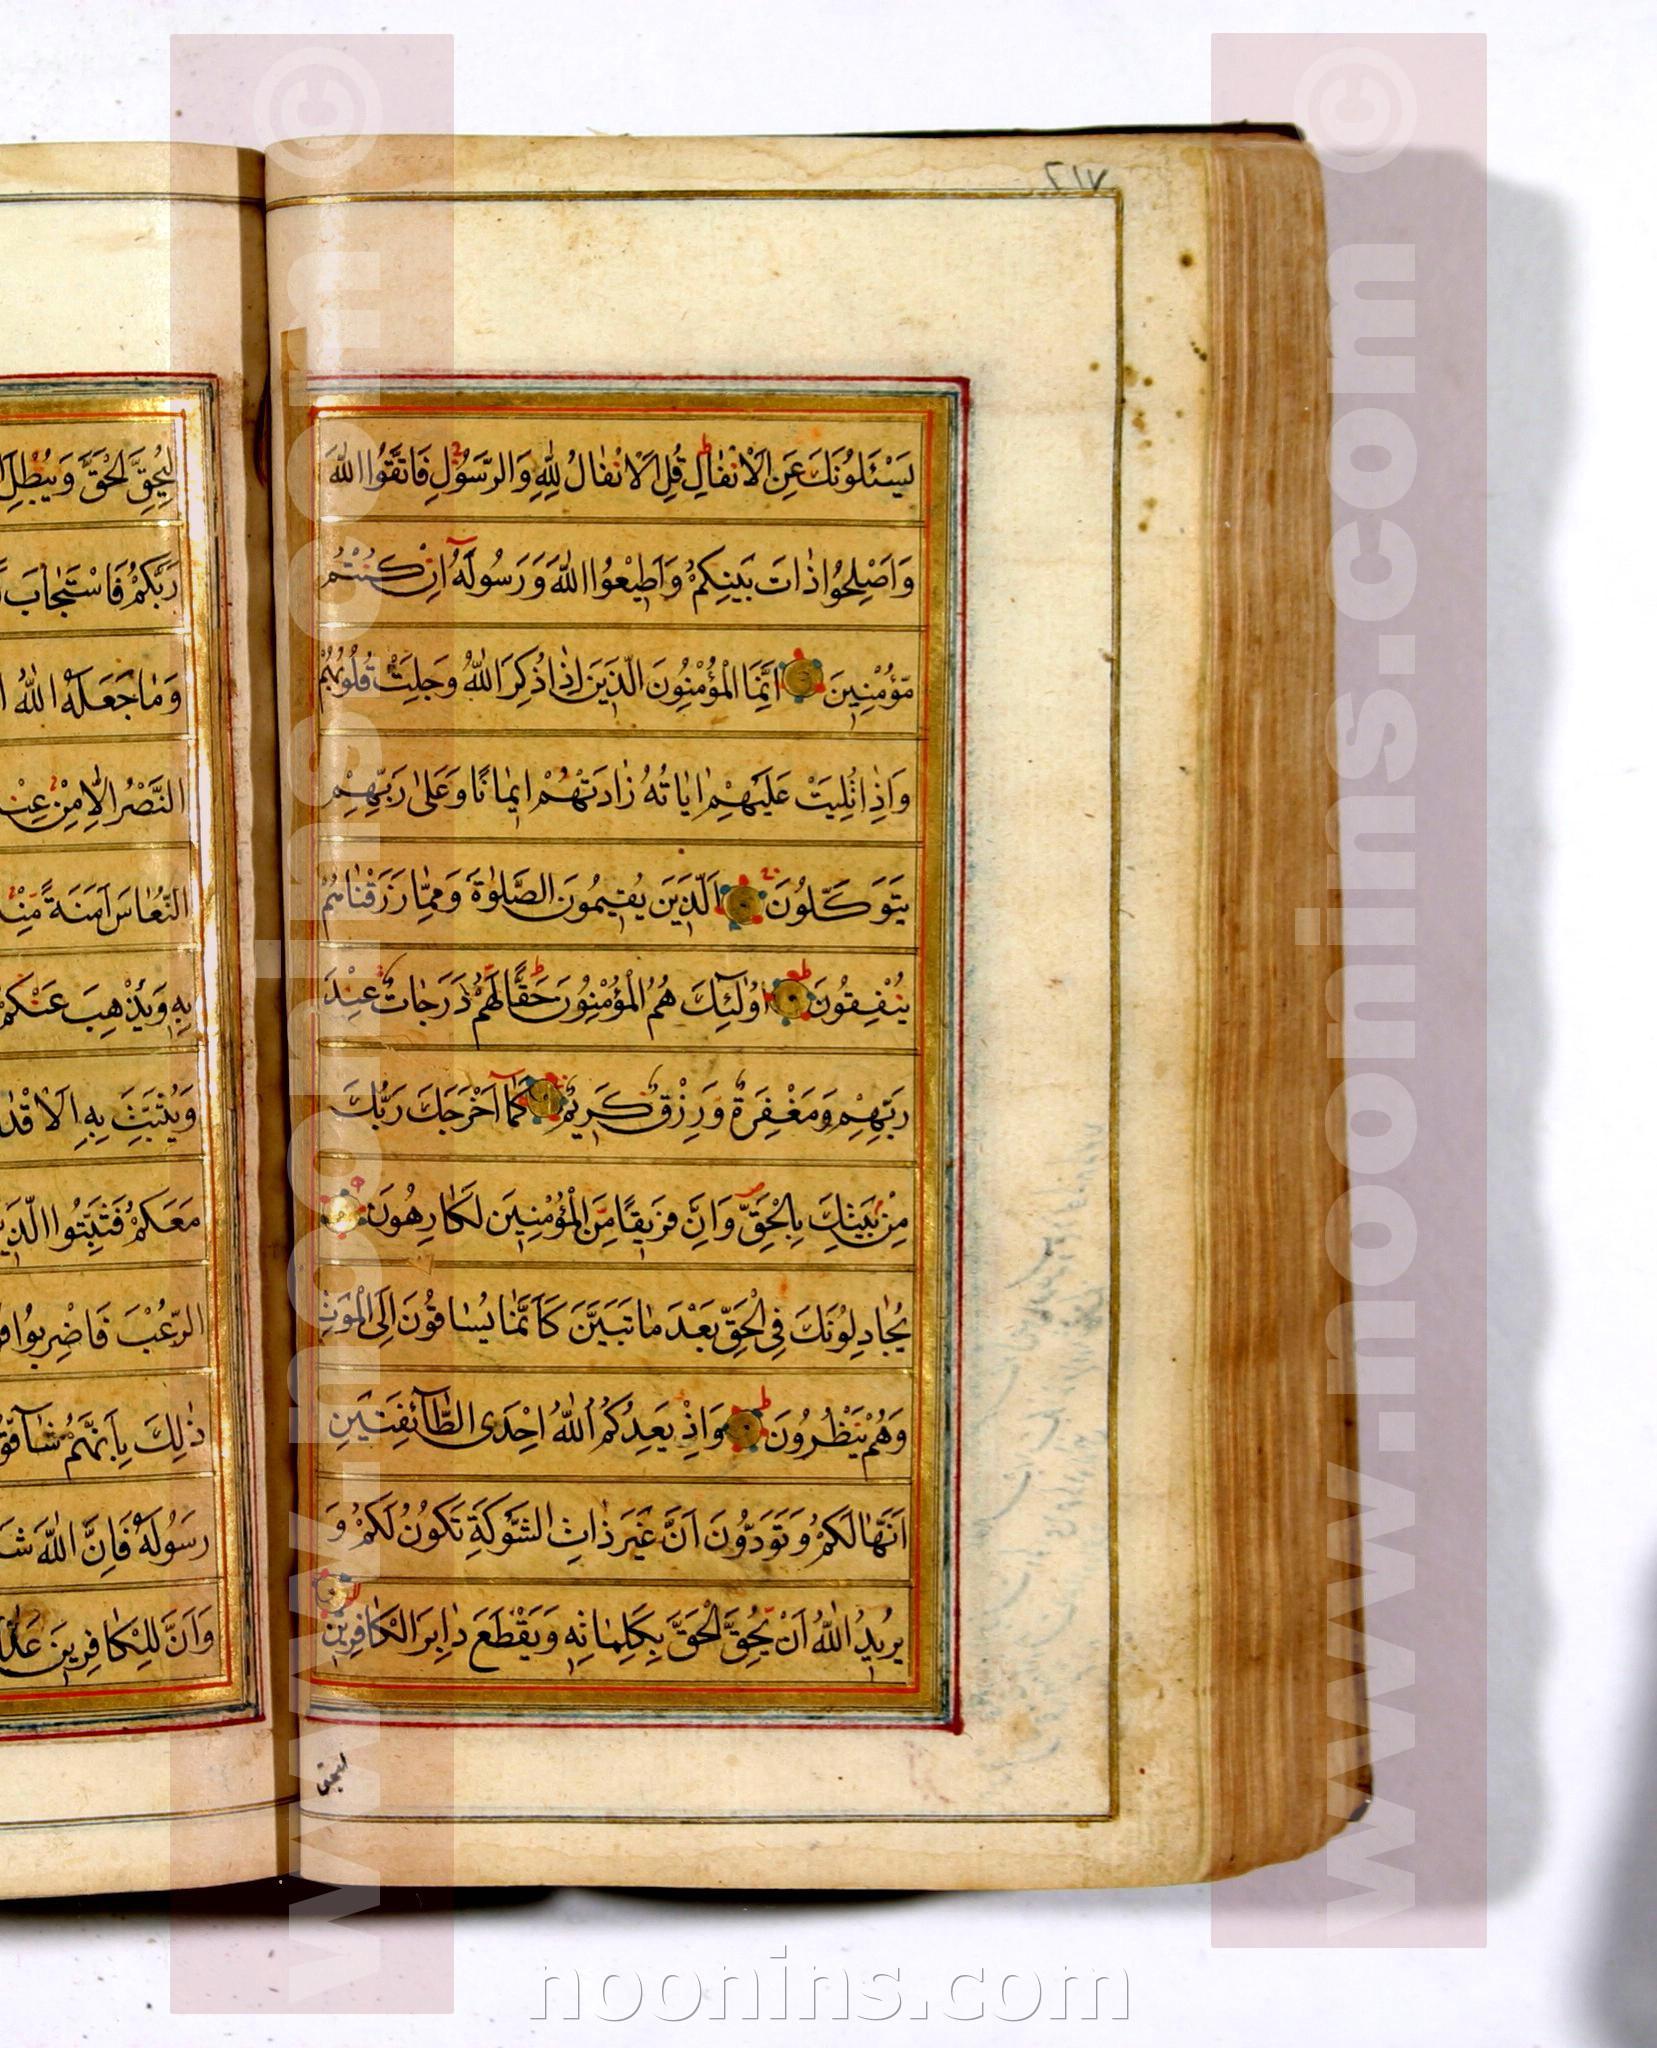 ٢١٧
يَسْئَلُونَكَ عَنِ الْاَنْفٰالِ قُلِ الْاَنْفٰالُ لِلّٰهِ وَالرَّسُولِ فَاتَّقُوا اللّٰهَ
وَاَصْلِحُوا ذٰاتَ بَيْنِكُمْ وَاَطِيْعُوا اللّٰهَ وَرَسُولَهُٓ اِنْ كُنْتُمْ
مُؤْمِنِينَ اِنَّمَا الْمُؤْمِنُونَ الَّذَيِنَ اِذٰا ذُكِرَ اللّٰهُ وَجِلَتْ قُلُوبُهُمْ
وَاِذٰا تُلِيَتْ عَلَيْهِمْ اٰيٰاتُهُ زٰادَتْهُمْ ايٖمٰانًا وَعَلىٰ رَبِّهِمْ
يَتَوَكَّلُونَ اَلَّذَيِنَ يُقيٖمُونَ الصَّلٰوةَ وَمِمّٰا رَزَقْنٰاهُمْ
يُنْفِقُونَ اُولٰٓئِكَ هُمُ الْمُؤْمِنُونَ حَقًّا لَهُمْ دَرَجٰاتٌ عِنْدَ
رَبِّهِمْ وَمَغْفِرَةٌ وَرِزْقٌ كَرِيٖمٌ كَمٰٓا اَخْرَجَكَ رَبُّكَ
مِنْ بَيْتِكَ بِالْحَقِّ وَاِنَّ فَرِيٖقًا مِنَ الْمُؤْمِنيٖنَ لَكٰارِهُونَ
يُجٰادِلُونَكَ فِي الْحَقِّ بَعْدَ مٰا تَبَيَّنَ كَاَنَّمٰا يُسٰاقُونَ اِلَى الْمَوْتِ
وَهُمْ يَنْظُرُونَ وَاِذْ يَعِدُكُمُ اللّٰهُ اِحْدَى الطّٰٓائِفَتَيْنِ
اَنَّهٰا لَكُمْ وَتَوَدُّونَ اَنَّ غَيْرَ ذٰاتِ الشَّوْكَةِ تَكُونُ لَكُمْ وَ
يُرِيدُ اللّٰهُ اَنْ يُحِقَّ الْحَقَّ بِكَلِمٰاتِهِ وَيَقْطَعَ دٰابِرَ الْكٰافِرِيٖنَ
ليحق
لِيُحِقَّ الْحَقَّ وَيُبْطِلَ
رَبَّكُمْ فَاسْتَجٰابَ
وَمٰا جَعَلَهُ اللّٰهُ
النَّصْرُ اِلّٰا مِنْ عِنْ
النُّعٰاسَ اَمَنَةً مِنْهُ
بِهِ وَيُذْهِبَ عَنْكُمْ
وَيُثَبِّتَ بِهِ الْاَقْدٰا
مَعَكُمْ فَثَبِّتُوا الَّذِيَ
الرُّعْبَ فَاضْرِبُوا فَ
ذٰلِكَ بِاَنَّهُمْ شٰٓاقُّو
رَسُولَهُ فَاِنَّ اللّٰهَ شَ
وَاَنَّ لِلْكٰافِرِيٖنَ عَذٰا
www.noonins.com ©
www.noonins.com ©
noonins.com